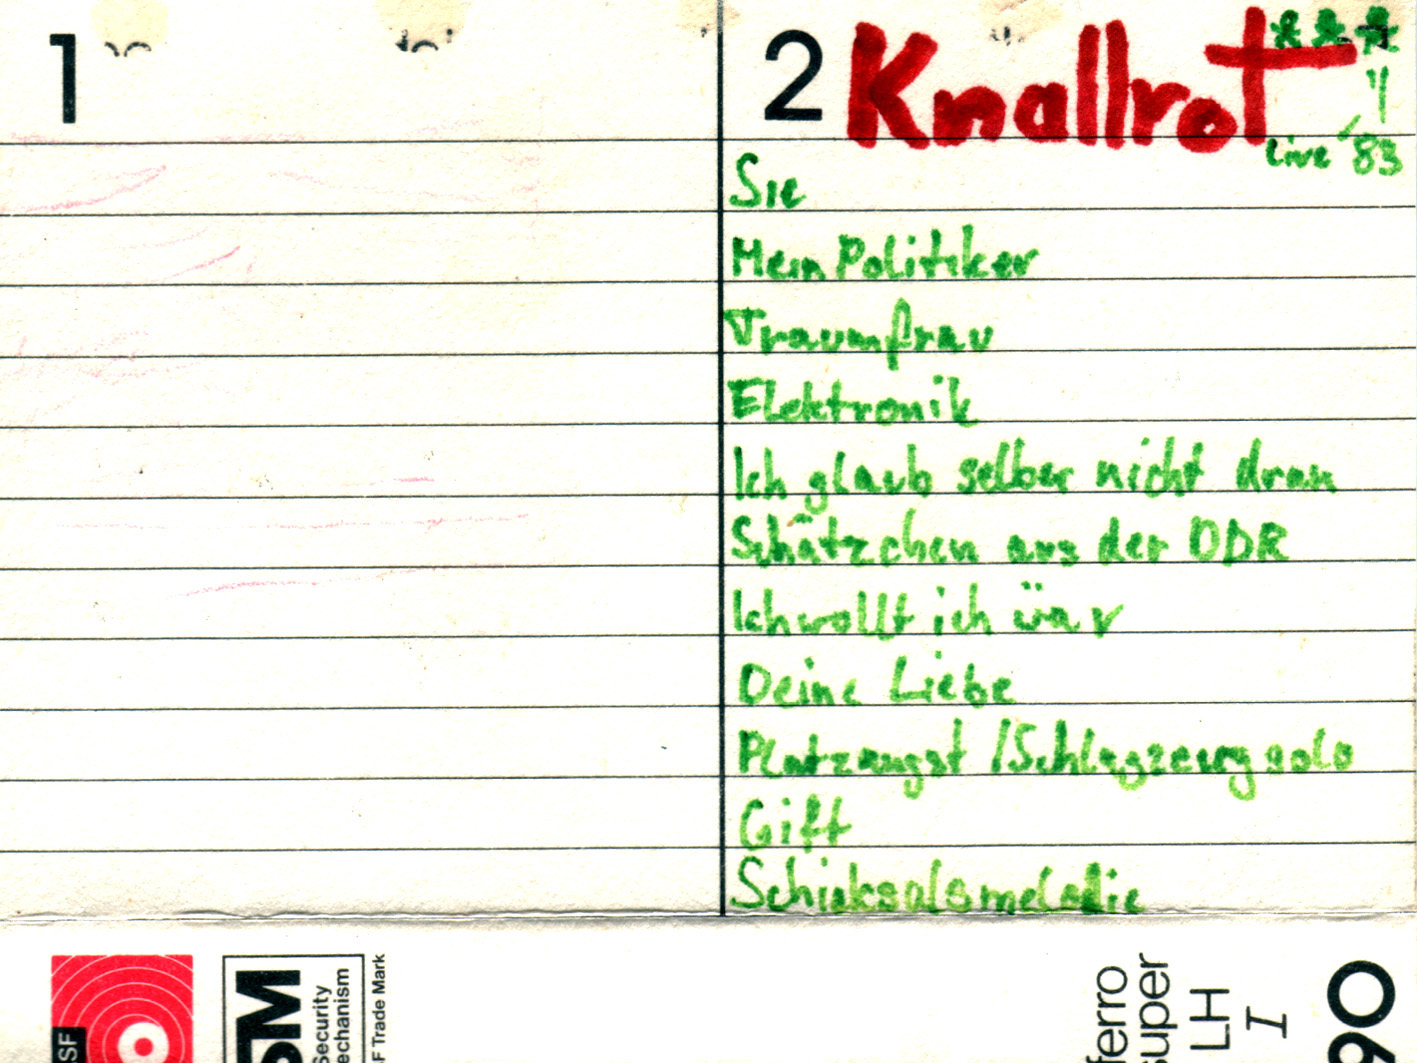 1
2 Knallrot
live '83
Sie
Mein Politiker
Traumfrau
Elektronik
Ich glaub selber nicht dran
Schätzchen aus der DDR
Ich wollt ich wär
Deine Liebe
Platzangst / Schlagzeugsolo
Gift
Schicksalsmelodie
SF
SM
Security
echanism
F Trade Mark
ferro
super
LH
I
90